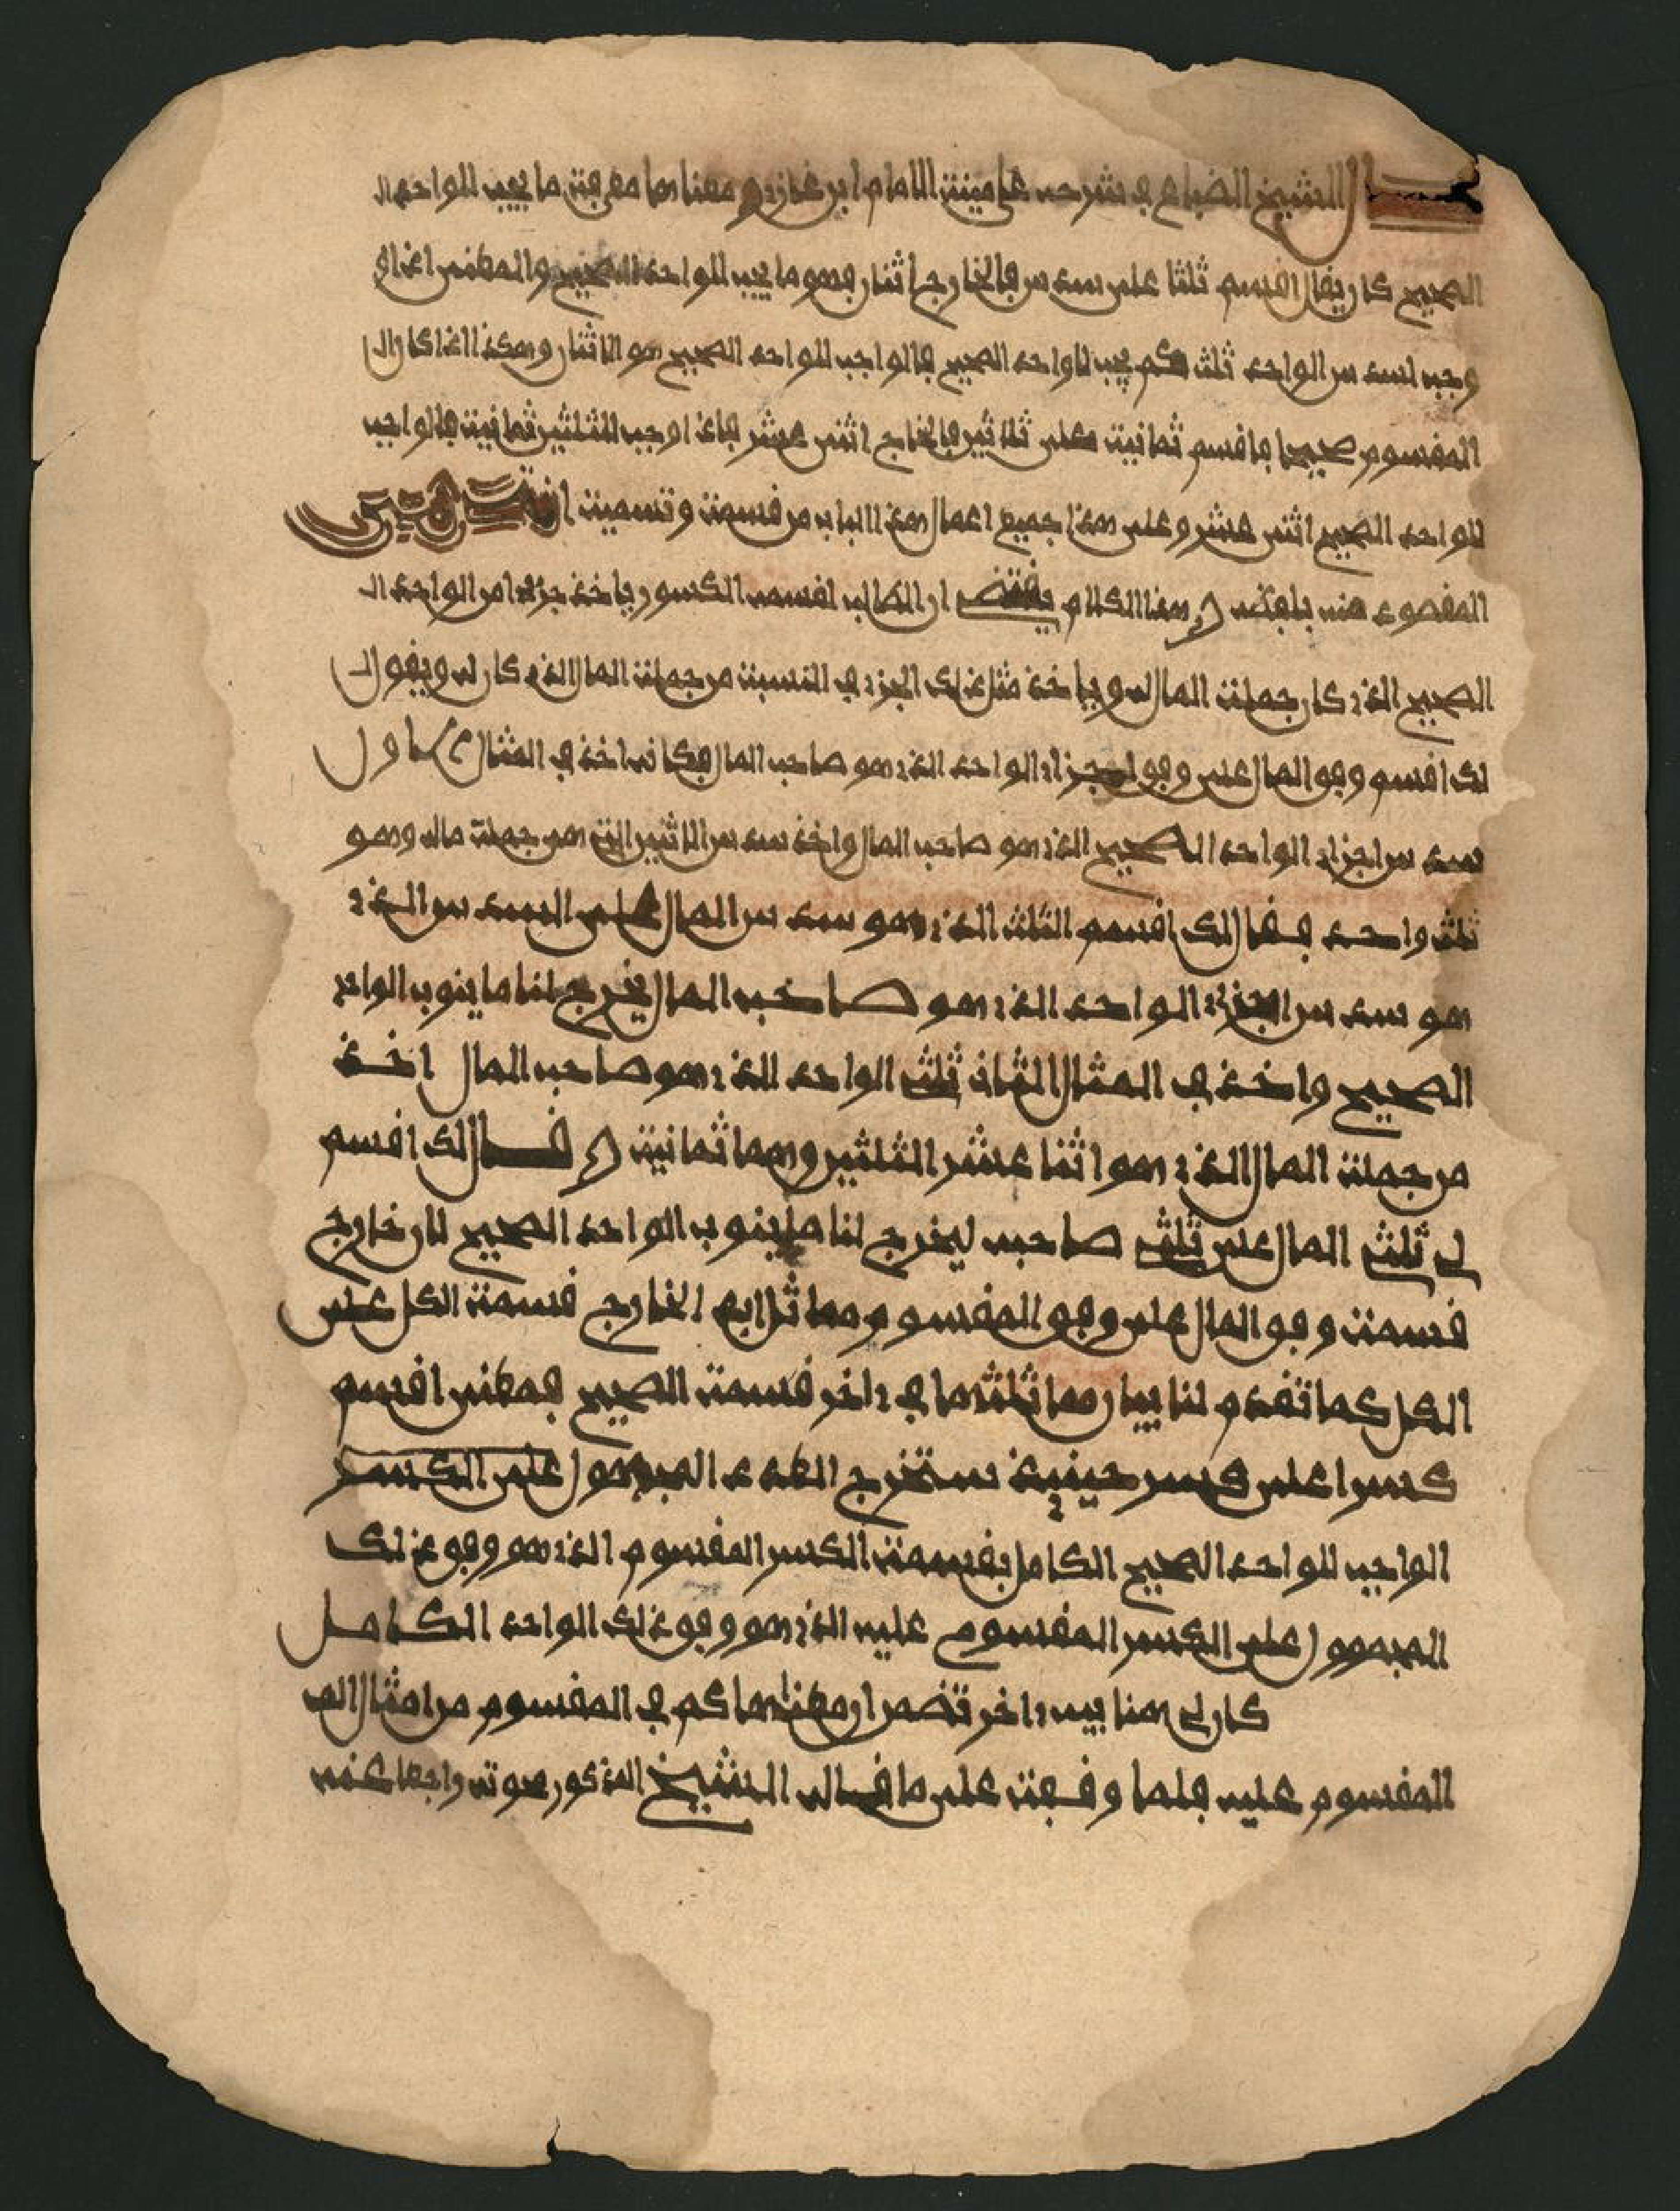 قال الشيخ الضباع في شرحه على منية الامام ابن غازي معناها معرفة ما يجب للواحد ال
الصحيح كان يقال اقسم ثلثا على سدس فالخارج اثنان فهو ما يجب للواحد الصحيح والمعنى اذا
وجب لسدس الواحد ثلث فكم يجب للواحد الصحيح فالواجب للواحد الصحيح هو الاثنان وهكذا اذا كان ال
المقسوم صحيحا فاقسم ثمانية على ثلثين فالخارج اثنى عشر فاذا وجب للثلثين ثمانية فالواجب
للواحد الصحيح اثنى عشر وعلى هذا جميع اعمال هذا الباب من قسمة وتسمية انتهى
المقصود منه بلفظه هذا الكلام يقتضى ان الطالب لقسمة الكسور ياخذ جزءا من الواحد ال
الصحيح الذي كان جملة المال له وياخذ مثل ذلك الجزء في النسبة من جملة المال الذي كان له ويقول
لك اقسم وفق المال على وفق اجزاء الواحد الذي هو صاحب المال فكانه اخذ في المثال الاول
سدس اجزاء الواحد الصحيح الذي هو صاحب المال واخذ سدس الاثنين التي هي جملة ماله وهو
ثلث واحد فقال لك اقسم الثلث الذي هو سدس المال على السدس الذي
هو سدس اجزاء الواحد الذي هو صاحب المال يخرج لنا ما ينوب الواحد
الصحيح واخذ في المثال الثاني ثلثي الواحد الذي هو صاحب المال اخذ
من جملة المال الذي هو اثنا عشر الثلثين وهما ثمانية فقال لك اقسم
لي ثلثي المال على ثلثي صاحبه ليخرج لنا ما ينوب الواحد الصحيح لان خارج
قسمة وفق المال على وفق المقسوم مماثل ابدا لخارج قسمة الكل على
الكل كما تقدم لنا بيان مماثلتهما في اخر قسمة الصحيح فمعنى اقسم
كسرا على كسر حينئذ استخرج العدد المجهول على الكسر
الواجب للواحد الصحيح الكامل بقسمة الكسر المقسوم الذي هو وفق ذلك
المجهول على الكسر المقسوم عليه الذي هو وفق ذلك الواحد الكامل
كان لي هنا بيه اخر تضمن ان معناها كم في المقسوم من امثال ال
المقسوم عليه فلما وقفت على ما قاله الشيخ المذكور محوته راجعا عنه